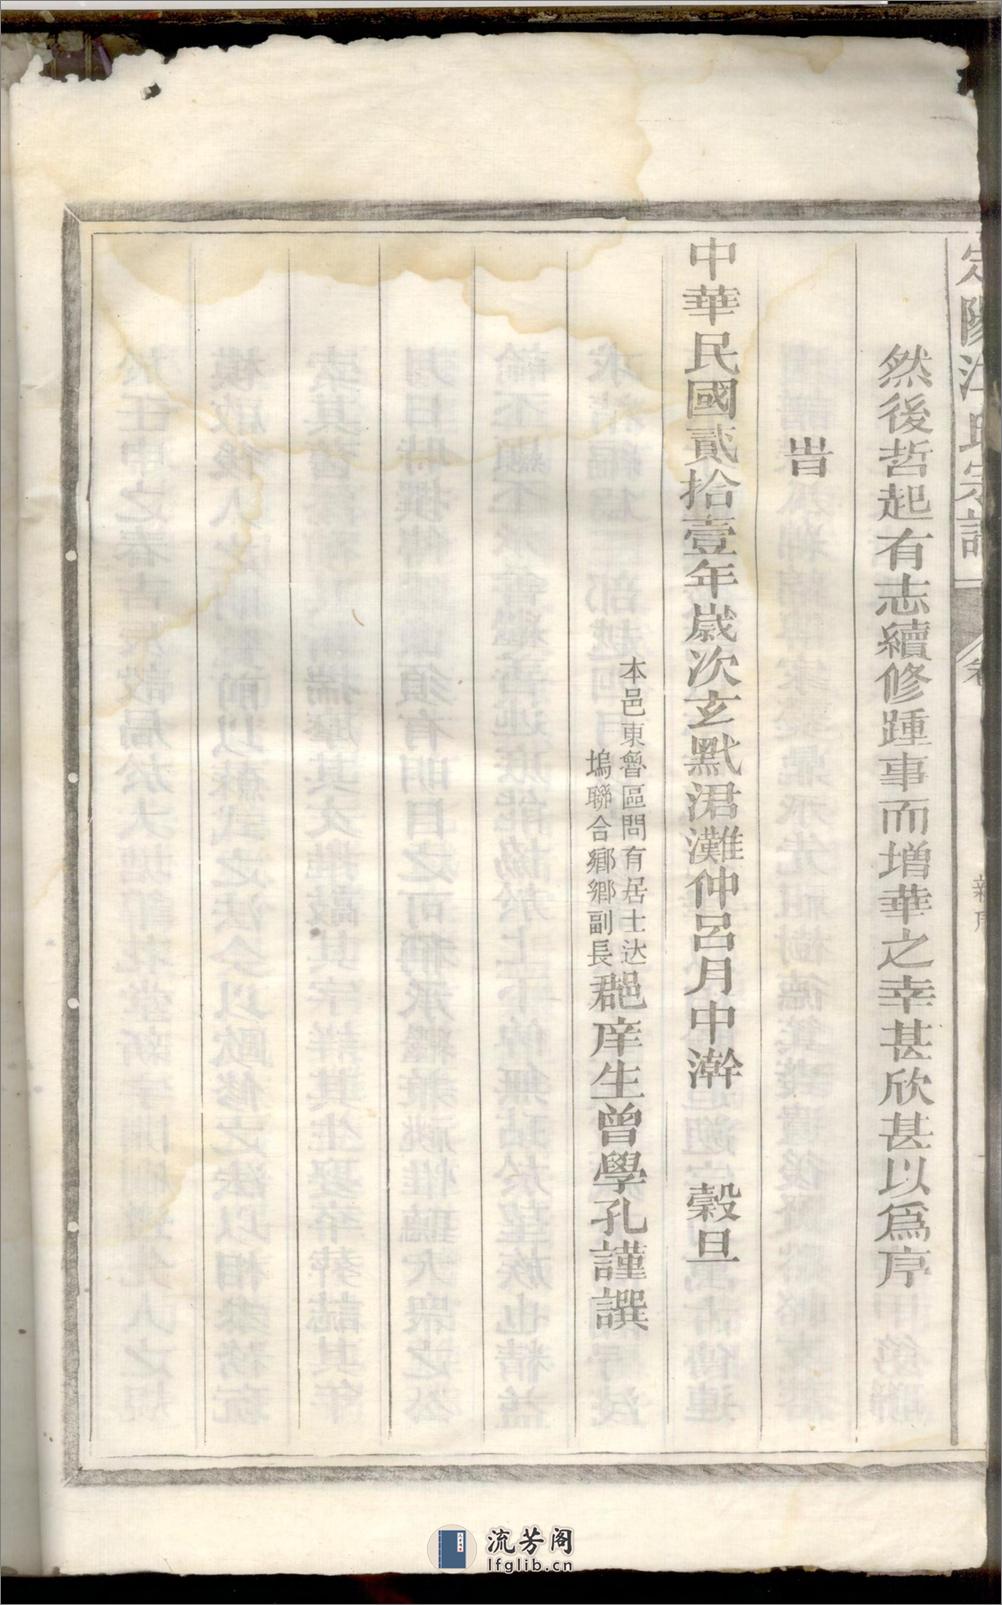 定陽江氏宗譜
新序
然後哲起有志續修踵事而增華之幸甚欣甚以為序
旹
中華民國貳拾壹年歲次玄默涒灘仲呂月中澣 穀旦
本邑東魯區問有居士达
塢聯合鄉鄉副長
郡庠生曾學孔謹譔
流芳阁
lfglib.cn